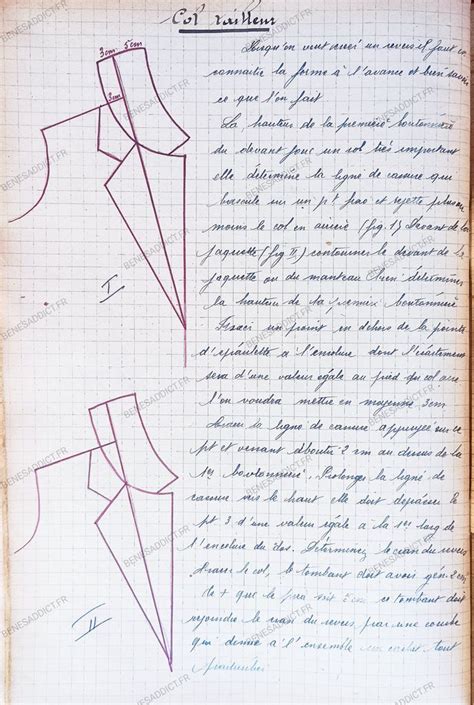 Col tailleur
Lorsqu'on veut créer un revers il faut en
connaitre la forme à l'avance et bien savoir
ce que l'on fait
La hauteur de la première boutonnière
du devant joue un rol très important
elle détermine la ligne de cassure qui
bascule un un p't pas et rejette plus ou
moins le col en arrière (fig. 1) Devant de la
jaquette (fig II) contourner le devant de la
jaquette ou du manteau bien déterminer
la hauteur de la première boutonnière
Fixer un point en dehors de la pointe
d'epaulette à l'encolure dont l'écartement
sera d'une valeur égale au pied du col que
l'on voudra mettre en moyenne 3cm
Tracer la ligne de cassure appuyée sur ce
pt et venant aboutir 2 cm au dessus de la
1re boutonnière. Prolonger la ligne de
cassure vers le haut elle doit dépasser le
pt 3 d'une valeur égale à la 1re larg de
l'encolure du dos. Déterminez le cran du revers
tracer le col, le tombant doit avoir gén 2cm
de + que le pied soit 5cm ce tombant doit
rejoindre le cran du revers par une courbe
qui donne à l'ensemble un cachet tout
particulier
3cm 5cm
3cm
I
II
BENESADDICT.FR
BENESADDICT.FR
BENESADDICT.FR
BENESADDICT.FR
BENESADDICT.FR
BENESADDICT.FR
BENESADDICT.FR
BENESADDICT.FR